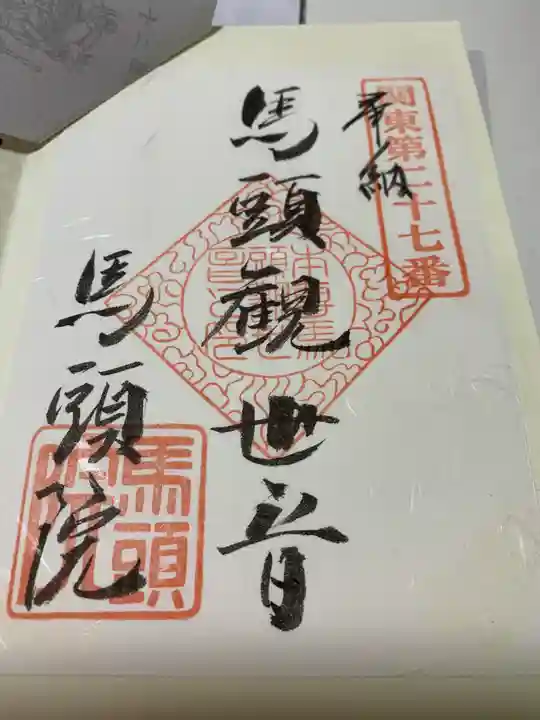 関東第二十七番
奉納
馬頭観世音
馬頭院
馬頭